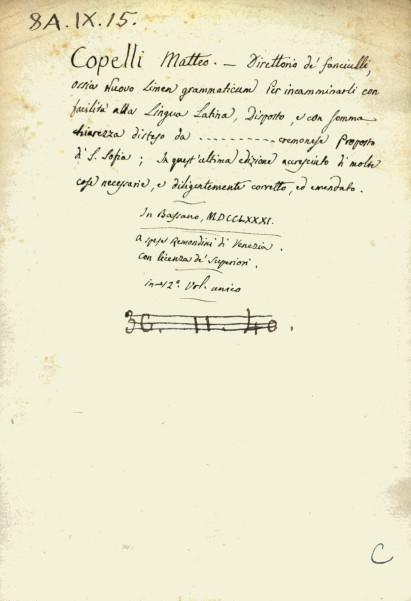 8A.IX.15.
Copelli Matteo. — Direttorio de' fanciulli,
ossia Nuovo Limen grammaticum per incamminarli con
facilità alla Lingua Latina, Disposto, e con somma
chiarezza disteso da ---------- cremonese Proposto
di S. Sofia; In quest'ultima edizione accresciuto di molte
cose necessarie, e diligentemente corretto, ed emendato.
In Bassano, MDCCLXXXI.
A spese Remondini di Venezia.
con licenza de' Superiori.
in-12º. Vol. unico
36. 11. 40.
C